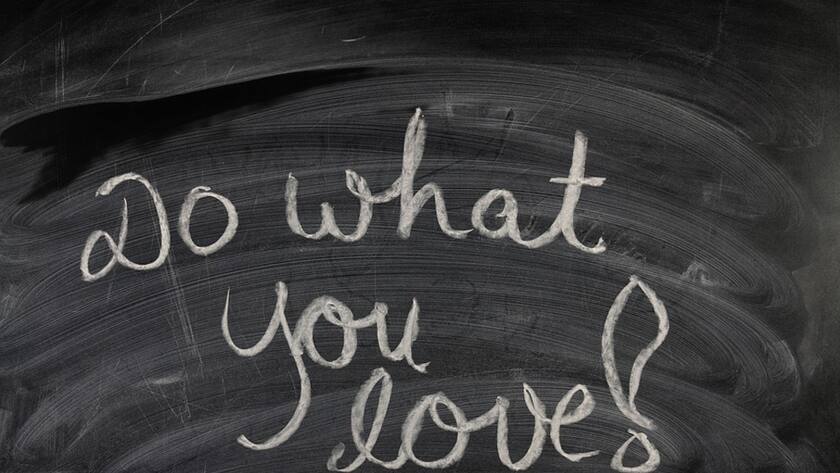 Do what
you
love!